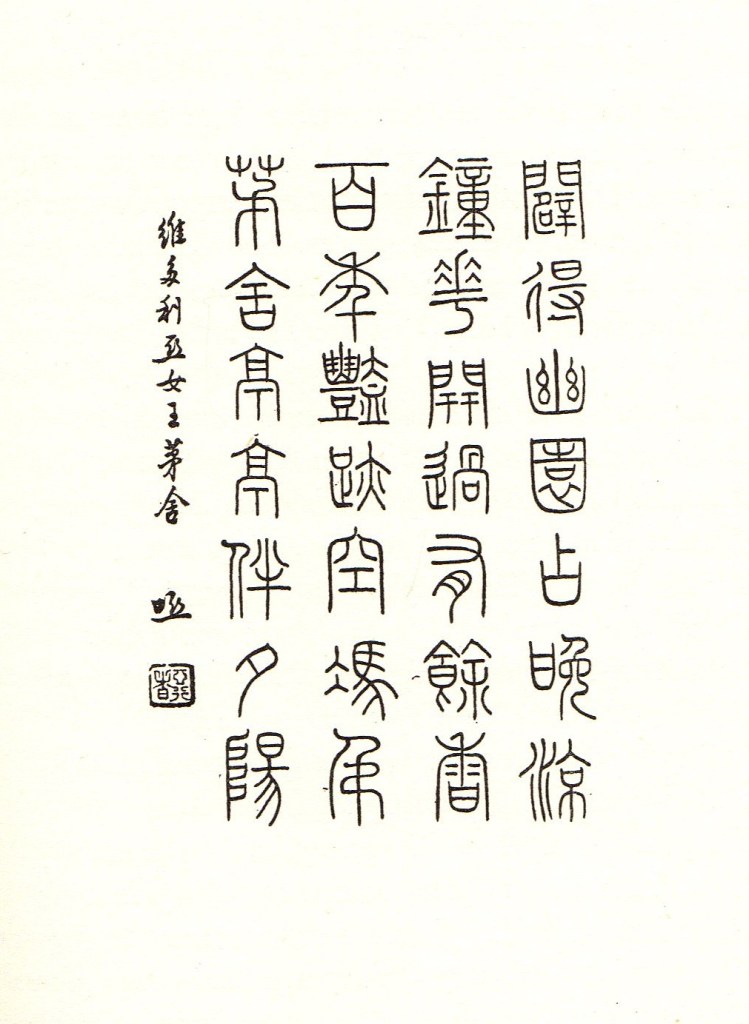 闢得幽園占晚涼
鐘花開過有餘香
百年豔跡空馮弔
茅舍亭亭伴夕陽
維多利亞女王茅舍 啞